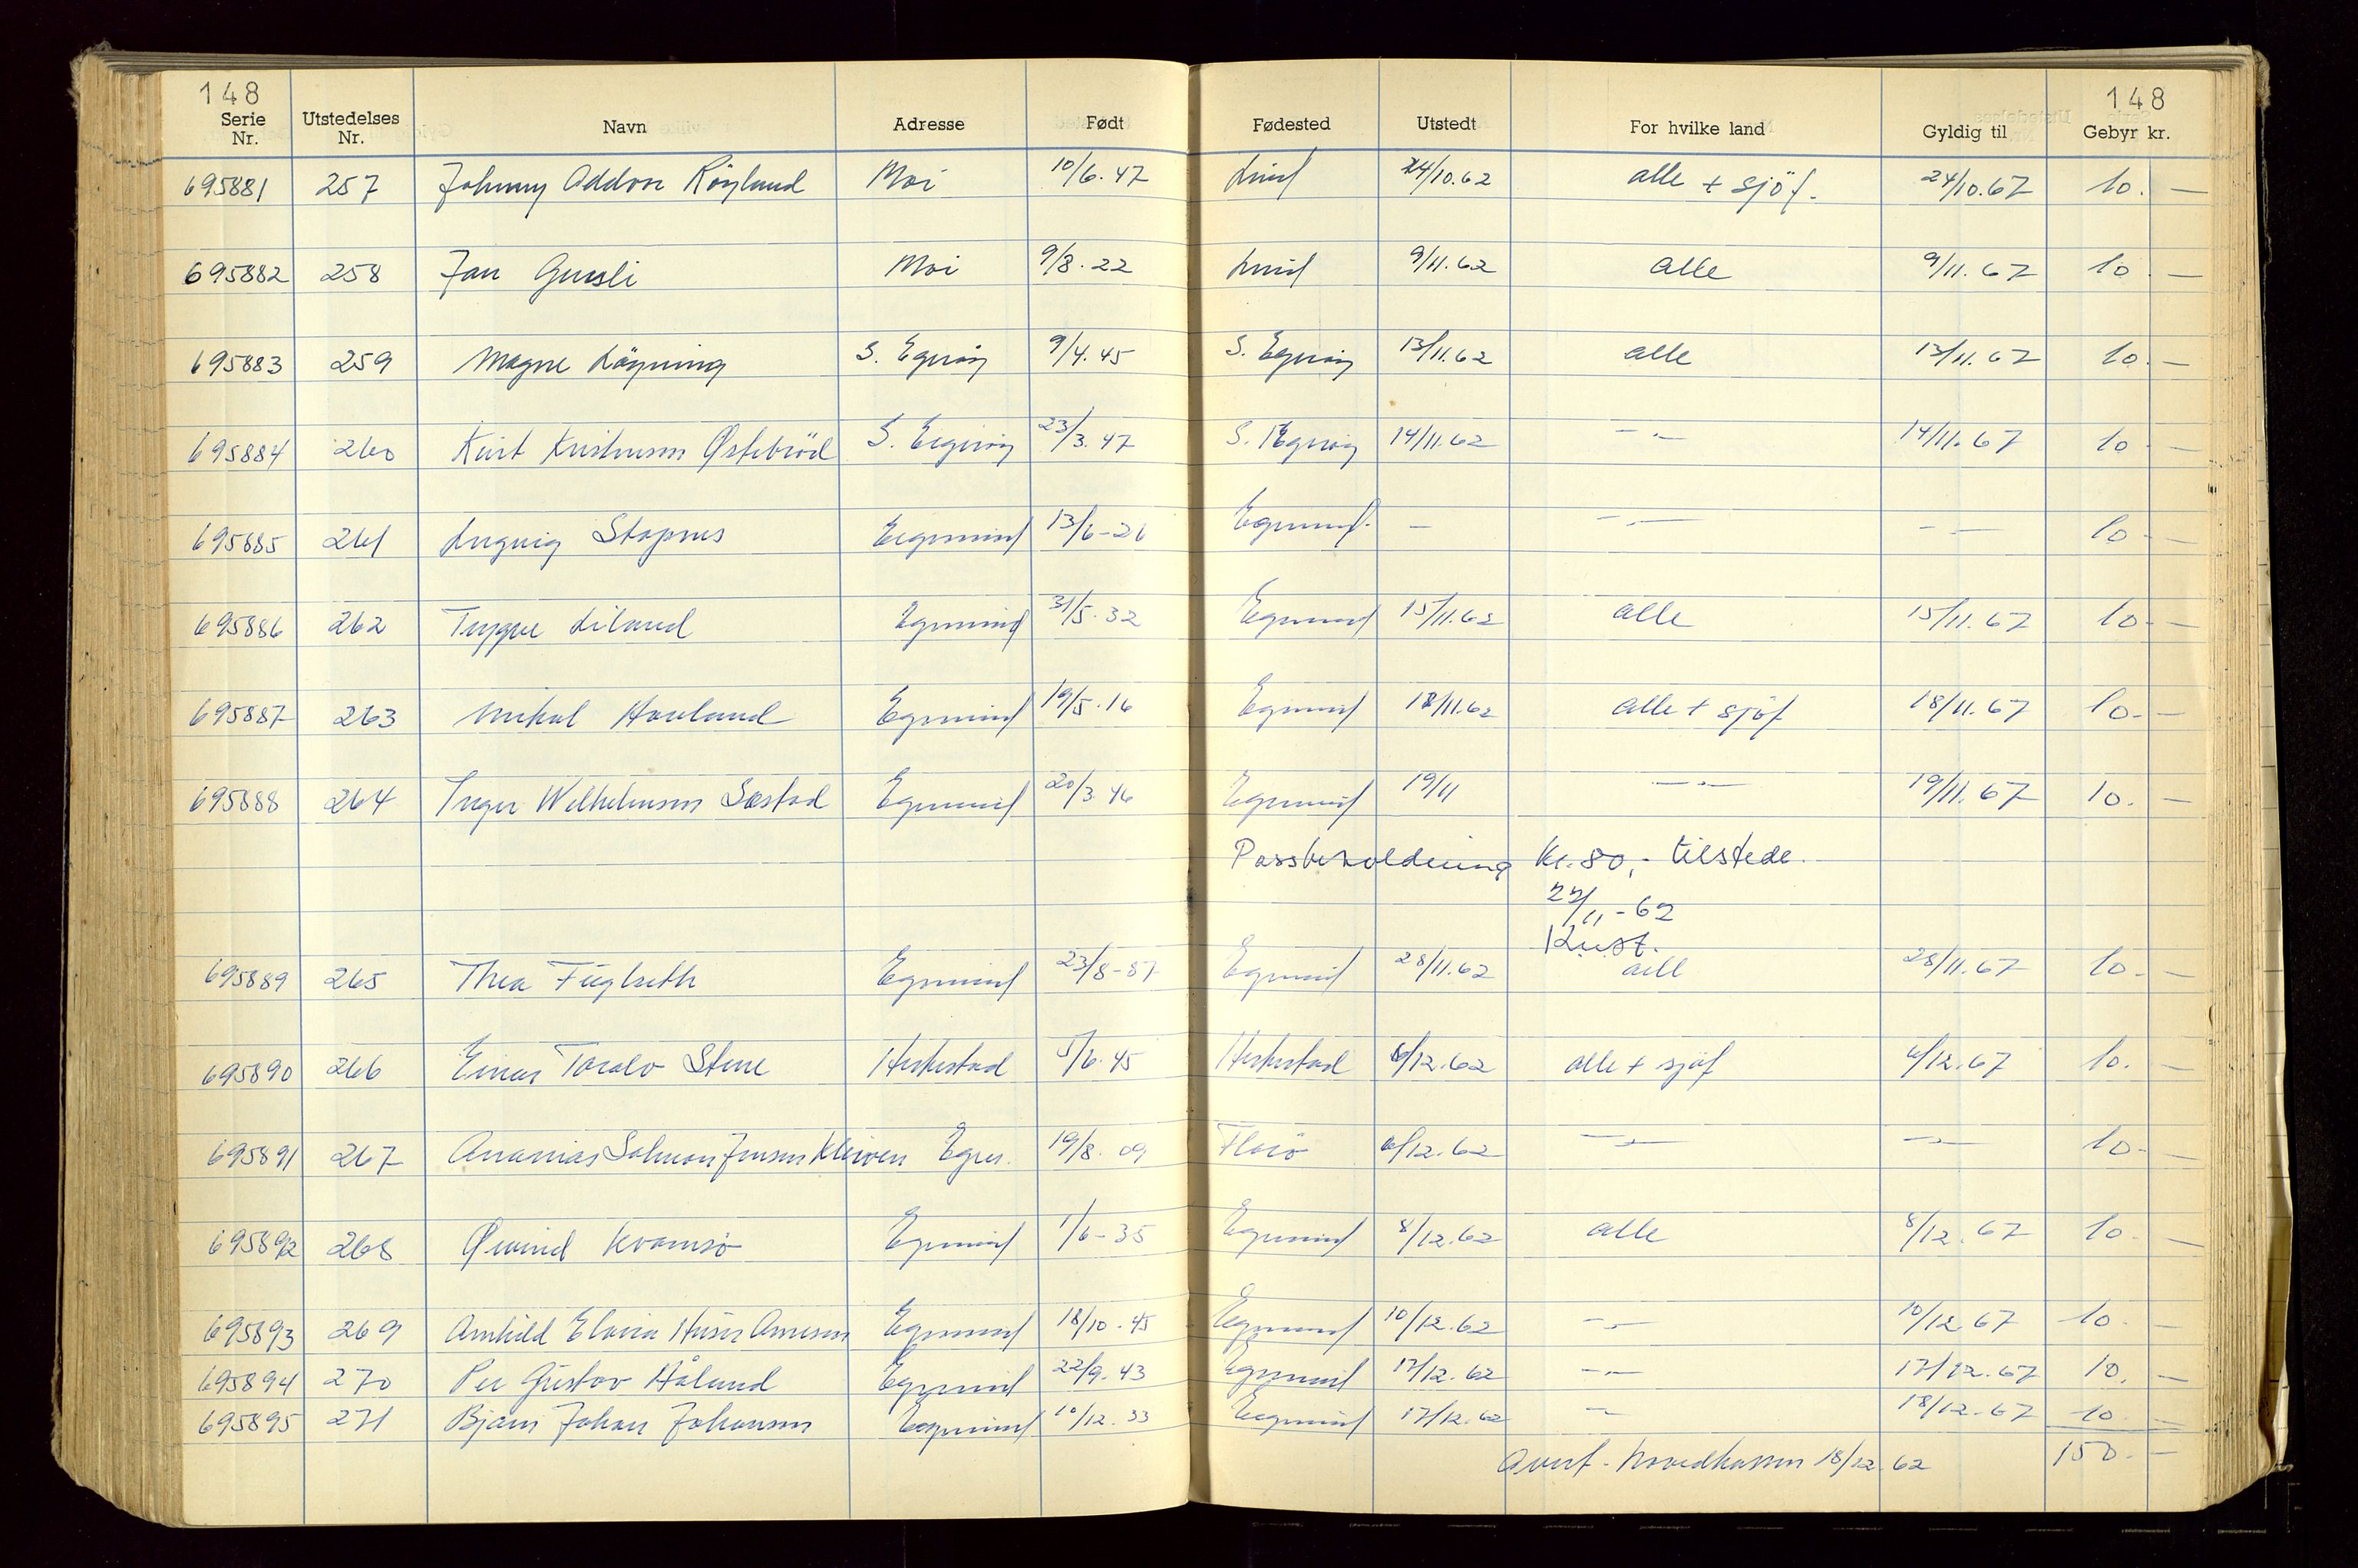 148 148
Serie Nr. Utstedelses Nr. Navn Adresse Født Fødested Utstedt For hvilke land Gyldig til Gebyr kr.
695881 257 Johnny Oddvar Røyland Moi 10/6.47 Lund 24/10.62 alle + sjöf. 24/10.67 10. —
695882 258 Jan Gursli Moi 9/8.22 Lund 9/11.62 alle 9/11.67 10 —
695883 259 Magne Løyning S. Egerøy 9/4.45 S. Egerøy 13/11.62 alle 13/11.67 10. —
695884 260 Kurt Kristensen Østebrød S. Eigerøy 23/3.47 S. Egerøy 14/11.62 —"— 14/11.67 10 —
695885 261 Stapnes Eigersund 13/6-26 Egersund. — —"— —"— 10. —
695886 262 Trygve Liland Egersund 31/5.32 Egersund 15/11.62 alle 15/11.67 10. —
695887 263 Mikal Havland Egersund 19/5.16 Egersund 18/11.62 alle + sjöf 18/11.67 10. —
695888 264 Inger Wilhelmsen Sæstad Egersund 20/3.46 Egersund 19/11 —"— 19/11.67 10. —
Passbeholdning kr. 80,- tilstede.
22/11-62
695889 265 Thea Fuglseth Egersund 23/8-87 Egersund 28/11.62 alle 28/11.67 10. —
695890 266 Einar Toralv Stene Heskestad 5/6.45 Heskestad 6/12.62 alle + sjöf 6/12.67 10. —
695891 267 Ananias Salmon Jensen Kleiven Egers. 19/8.09 Florö 6/12.62 —"— —"— 10. —
695892 268 Øivind Kvamsö Egersund 1/6-35 Egersund 8/12.62 alle 8/12.67 10. —
695893 269 Arnhild Egersund 18/10.45 Egersund 10/12.62 —"— 10/12 67 10. —
695894 270 Per Gustav Håland Egersund 22/9.43 Egersund 17/12.62 —"— 17/12.67 10. —
695895 271 Bjarne Johan Johansen Eegersund 10/12.33 Eegersund 17/12.62 —"— 18/12.67 10. —
Overf. hovedkassen 18/12.62 150. —